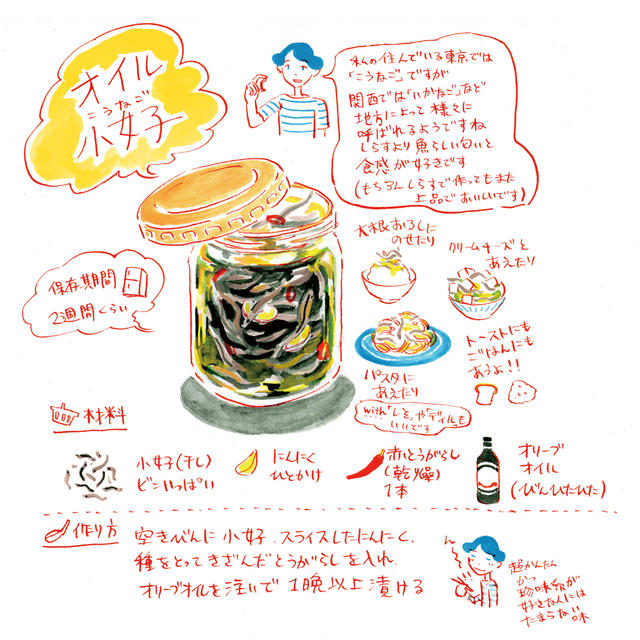 オイル
こうなご
小女子
私の住んでいる東京では
「こうなご」ですが
関西では「いかなご」など
地方によって様々に
呼ばれるようですね
しらすより魚らしい匂いと
食感が好きです
(もちろんしらすで作ってもまた
上品でおいしいです)
保存期間
2週間くらい
大根おろしに
のせたり
クリームチーズと
あえたり
パスタに
あえたり
withレモンやディルも
いいです
トーストにも
ごはんにも
あうよ!!
材料
小女子(干し)
ビンいっぱい
にんにく
ひとかけ
赤とうがらし
(乾燥)
1本
オリーブ
オイル
(びんひたひた)
作り方
空きびんに小女子、スライスしたにんにく、
種をとってきざんだとうがらしを入れ
オリーブオイルを注いで1晩以上漬ける
超かんたん
かつ
珍味系が
好きな人には
たまらない味